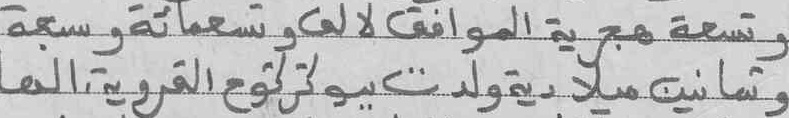 وتسعة هجرية الموافق لالف وتسعمائة وسبعة
وثمانين ميلادية ولدت بيوكرى القروية، الها